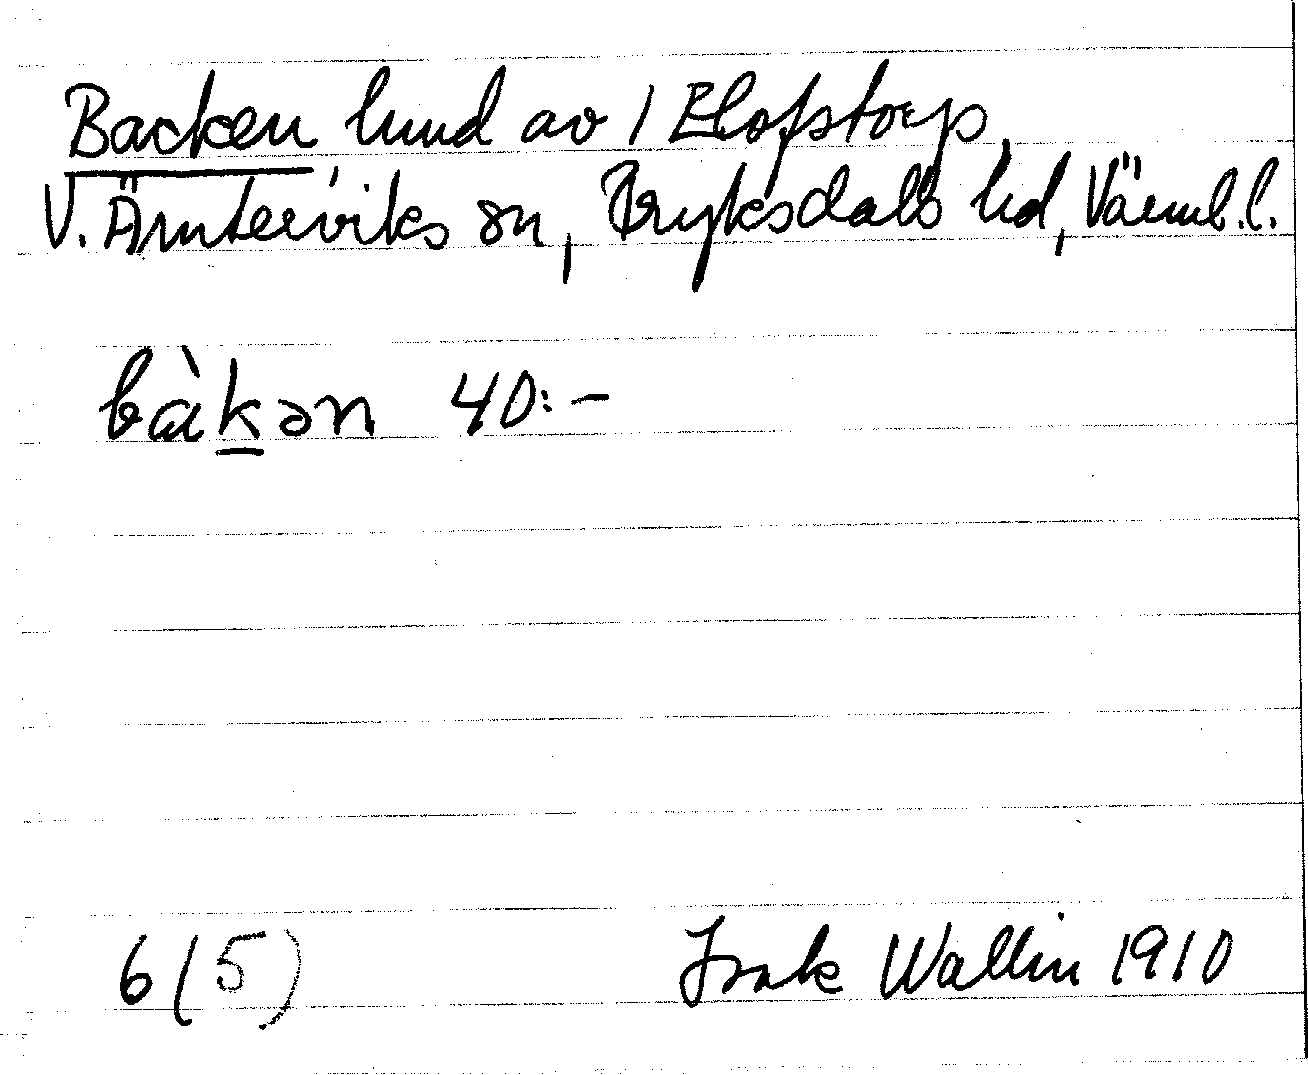 Backen, lund av 1 Elofstorp,
V. Ämterviks sn, Fryksdals hd, Värml. l.
bàk̲ən 40:-
6 (5) Isak Wallin 1910